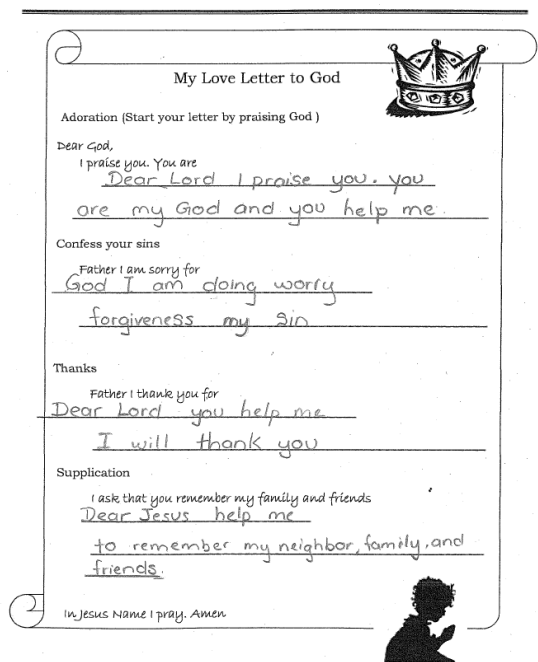 My Love Letter to God
Adoration (Start your letter by praising God )
Dear God,
I praise you. You are
Dear Lord I praise you. you
are my God and you help me.
Confess your sins
Father I am sorry for
God I am doing worry
forgiveness my sin
Thanks
Father I thank you for
Dear Lord you help me
I will thank you
Supplication
I ask that you remember my family and friends
Dear Jesus help me
to remember my neighbor, family, and
friends.
In Jesus Name I pray. Amen